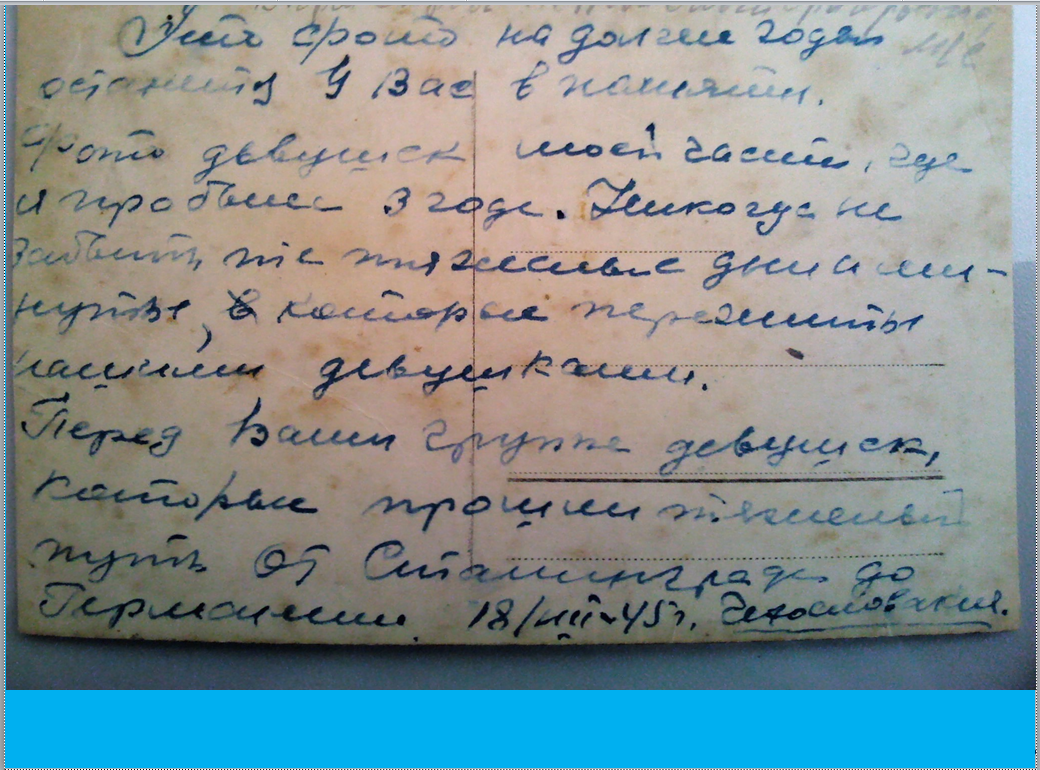 Это фото на долгие годы
останется у Вас в памяти.
Фото девушек моей части, где
я пробыла 3 года. Никогда не
забыть те тяжелые дни и ми-
нуты, которые пережиты
нашими девушками.
Перед Вами группа девушек,
которые прошли тяжелый
путь от Сталинграда до
Германии. 18/VIII-45г. Чехословакия.